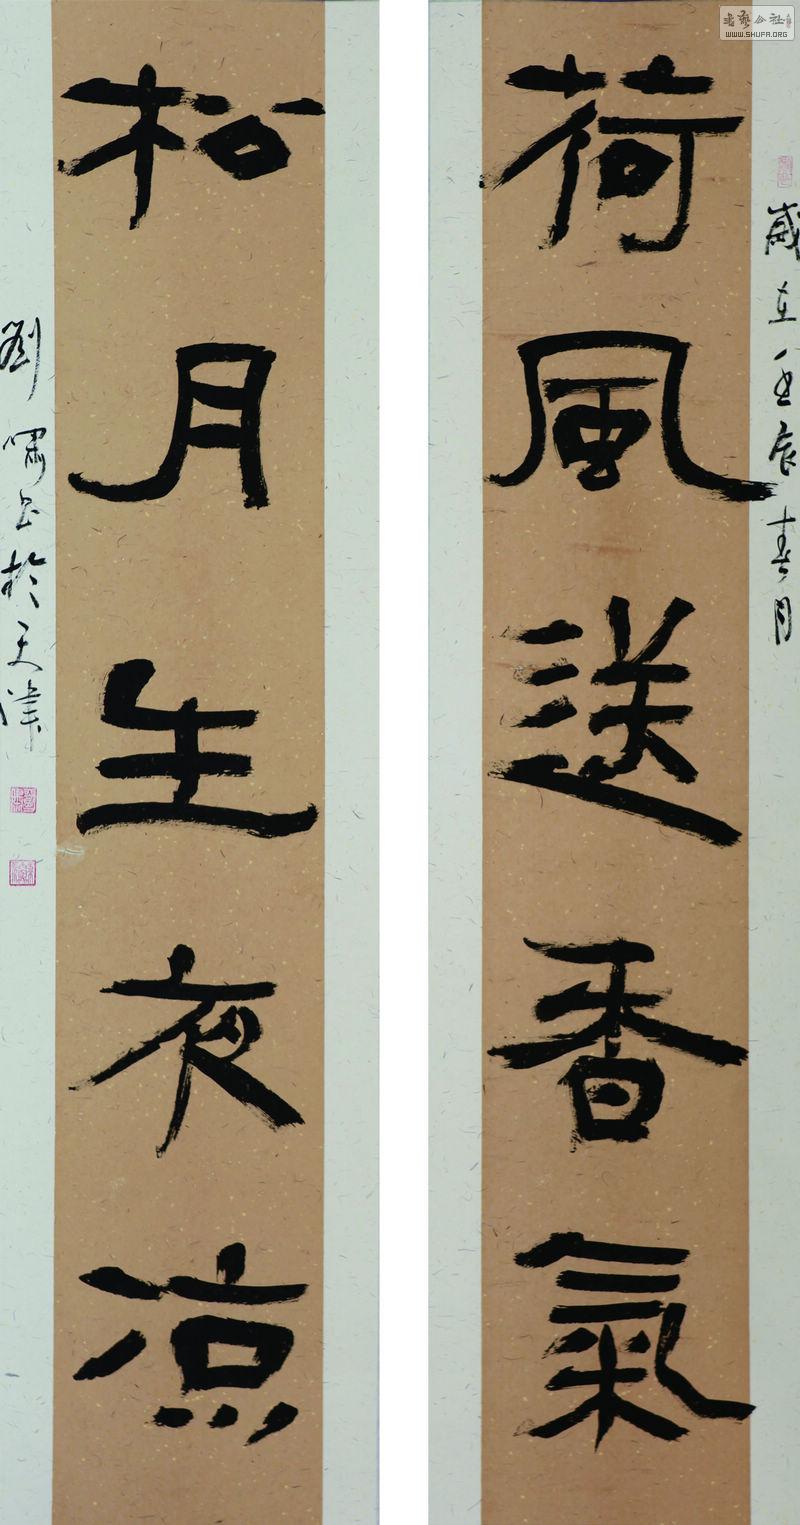 荷風送香氣
松月生夜凉
歲在壬辰春月
劉嘯書於天津
書藝公社
WWW.SHUFA.ORG